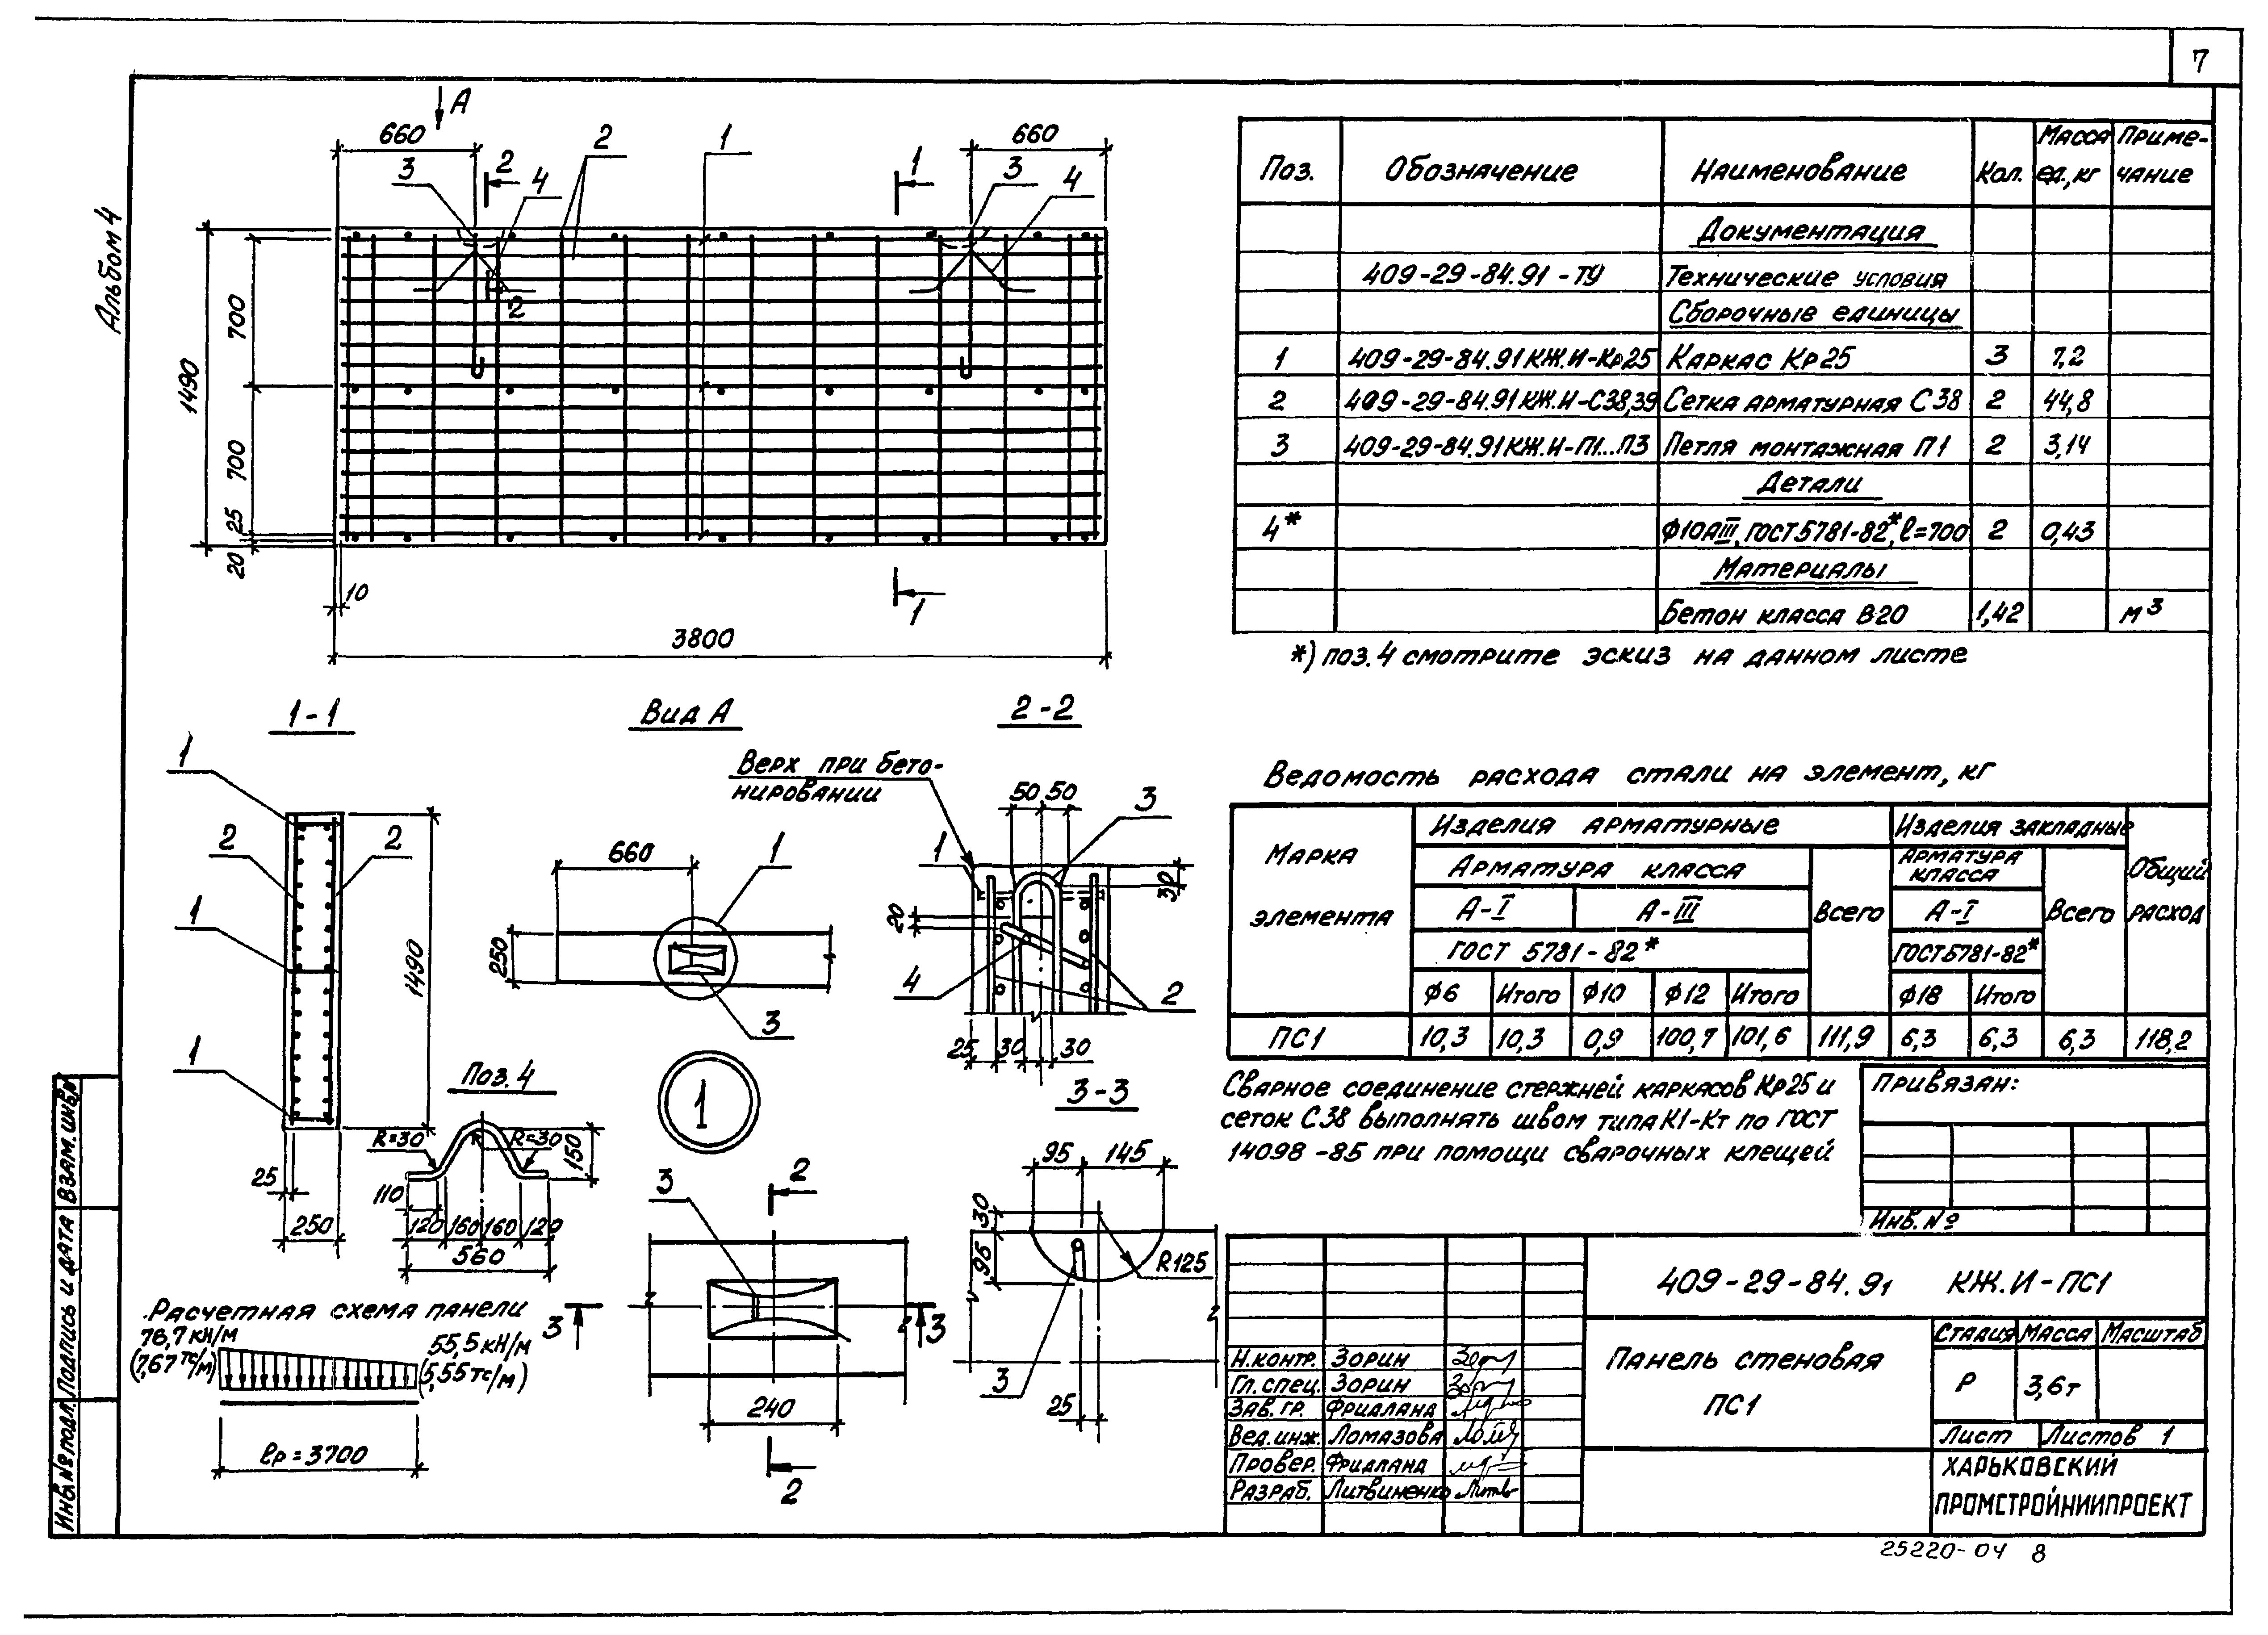 7
Альбом 4
А
660
660
3
2
4
2
1
1
3
4
2
1490
700
700
25
20
10
1
3800
Поз.
Обозначение
Наименование
Кол.
Масса ед., кг
Приме-
чание
Документация
409-29-84.91-ТУ
Технические условия
Сборочные единицы
1 409-29-84.91 КЖ.И-Кр25 Каркас Кр25 3 7,2
2 409-29-84.91 КЖ.И-С38,39 Сетка арматурная С38 2 44,8
3 409-29-84.91 КЖ.И-П1...П3 Петля монтажная П1 2 3,14
Детали
4* Ф10АIII, ГОСТ 5781-82*, ℓ=700 2 0,43
Материалы
Бетон класса В20 1,42 м³
*) поз. 4 смотрите эскиз на данном листе
1-1
1
2
2
1
1
1490
25
250
Вид А
660
1
250
3
2-2
Верх при бето-
нировании
50 50
3
1
30
20
4
2
25 30 30
Поз. 4
R=30
R=30
150
110
120 160 160 120
560
1
3
2
3
3
240
2
3-3
95 145
30
95
R125
3
25
Расчетная схема панели
76,7 кН/м
(7,67 тс/м)
55,5 кН/м
(5,55 тс/м)
ℓр = 3700
Ведомость расхода стали на элемент, кг
Марка
элемента
Изделия арматурные
Изделия закладные
Общий
расход
Арматура класса
Всего
Арматура
класса
Всего
А-I
А-III
А-I
ГОСТ 5781-82*
ГОСТ 5781-82*
Ф6 Итого Ф10 Ф12 Итого Ф18 Итого
ПС1 10,3 10,3 0,9 100,7 101,6 111,9 6,3 6,3 6,3 118,2
Сварное соединение стержней каркасов Кр25 и
сеток С38 выполнять швом типа К1-Кт по ГОСТ
14098-85 при помощи сварочных клещей
Привязан:
Инв. №
409-29-84.91 КЖ.И-ПС1
Панель стеновая
ПС1
Стадия Масса Масштаб
Р 3,6т
Лист Листов 1
Харьковский
Промстройниипроект
Н.контр. Зорин
Гл. спец. Зорин
Зав. гр. Фридланд
Вед. инж. Ломазова
Провер. Фридланд
Разраб. Литвиненко
Инв. № подл.
Подпись и дата
Взам. инв. №
25220-04 8